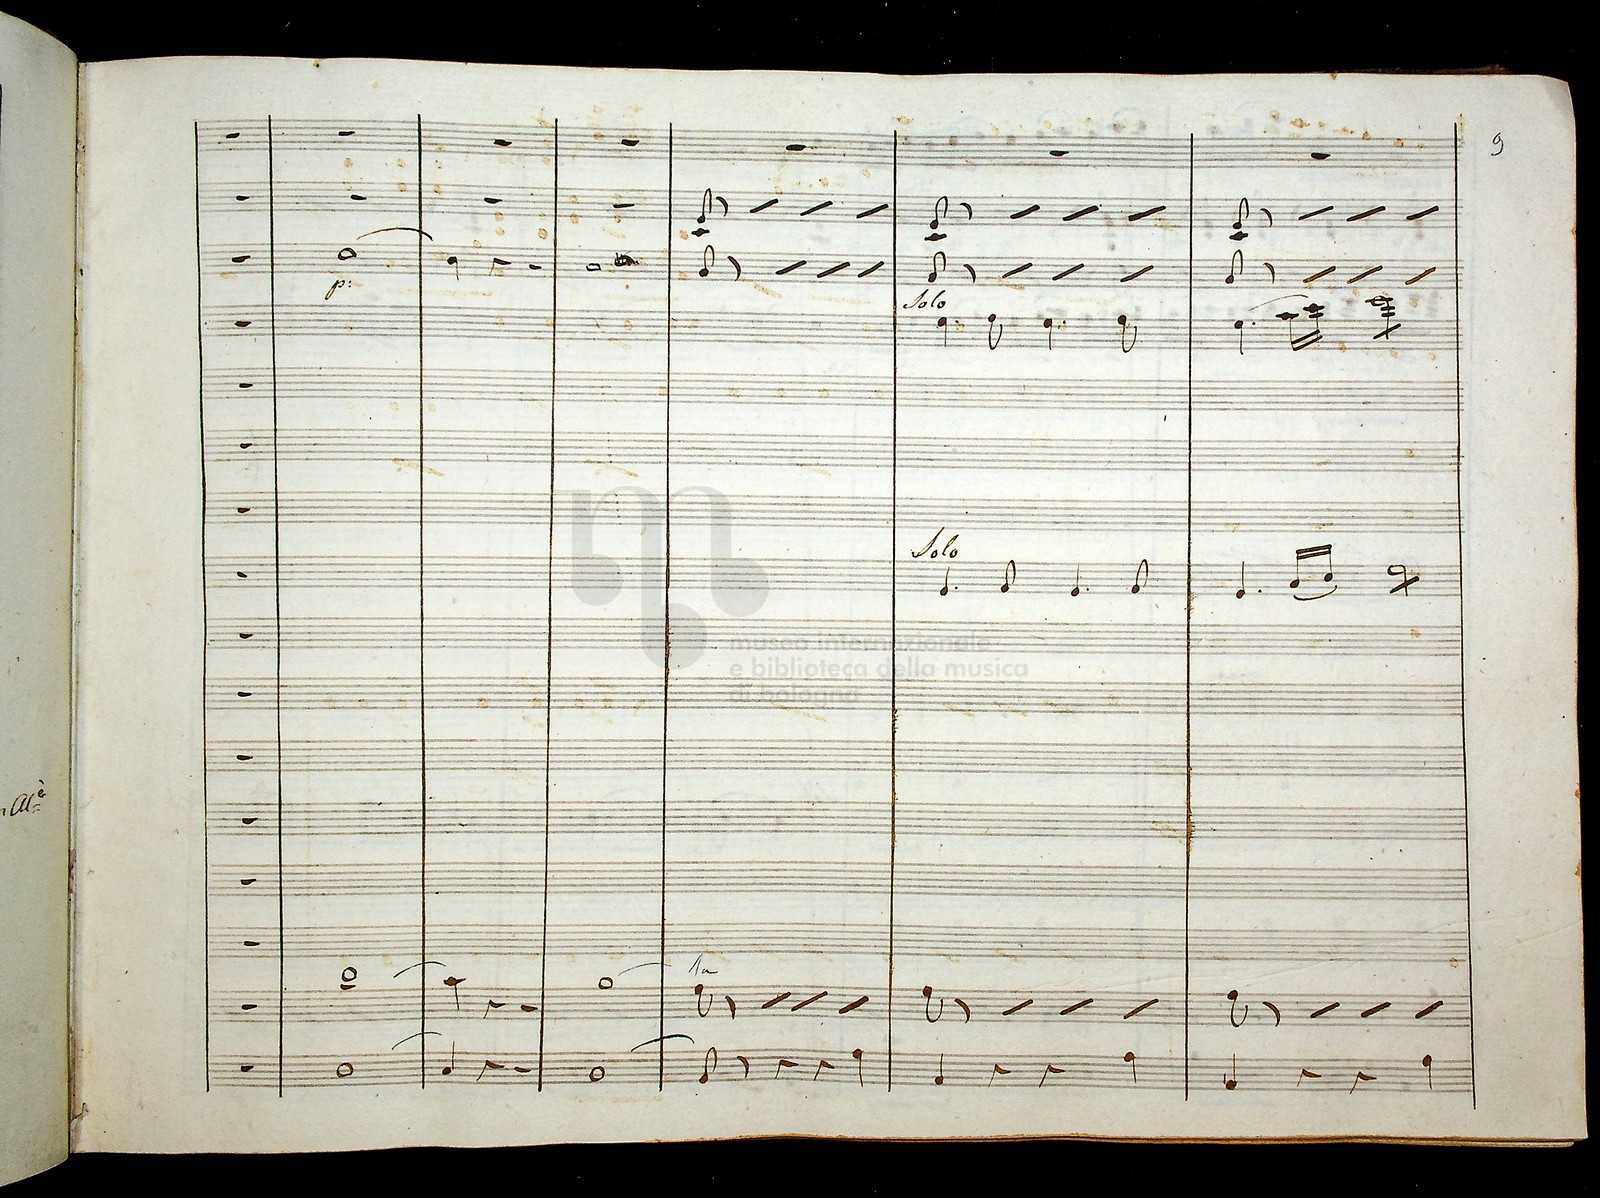 9
p:
Solo
Solo
museo internazionale
e biblioteca della musica
di bologna